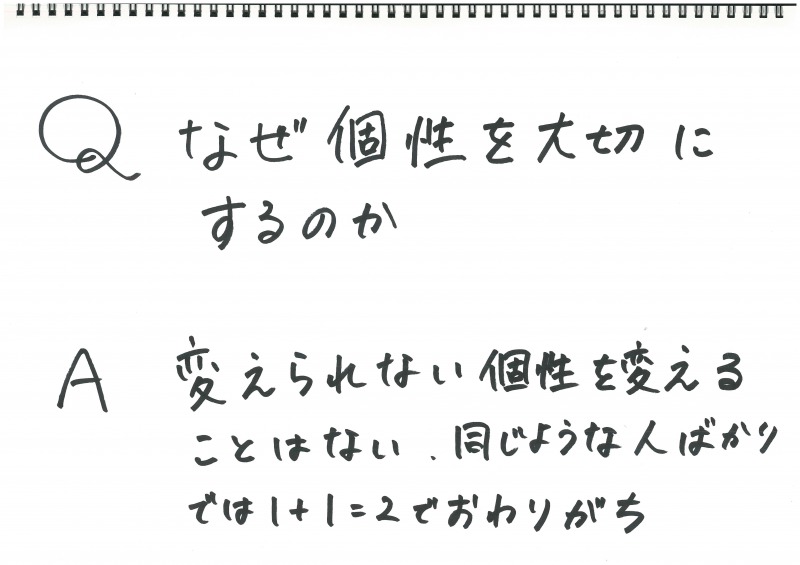 Q なぜ個性を大切に
するのか
A 変えられない個性を変える
ことはない. 同じような人ばかり
では1+1=2でおわりがち